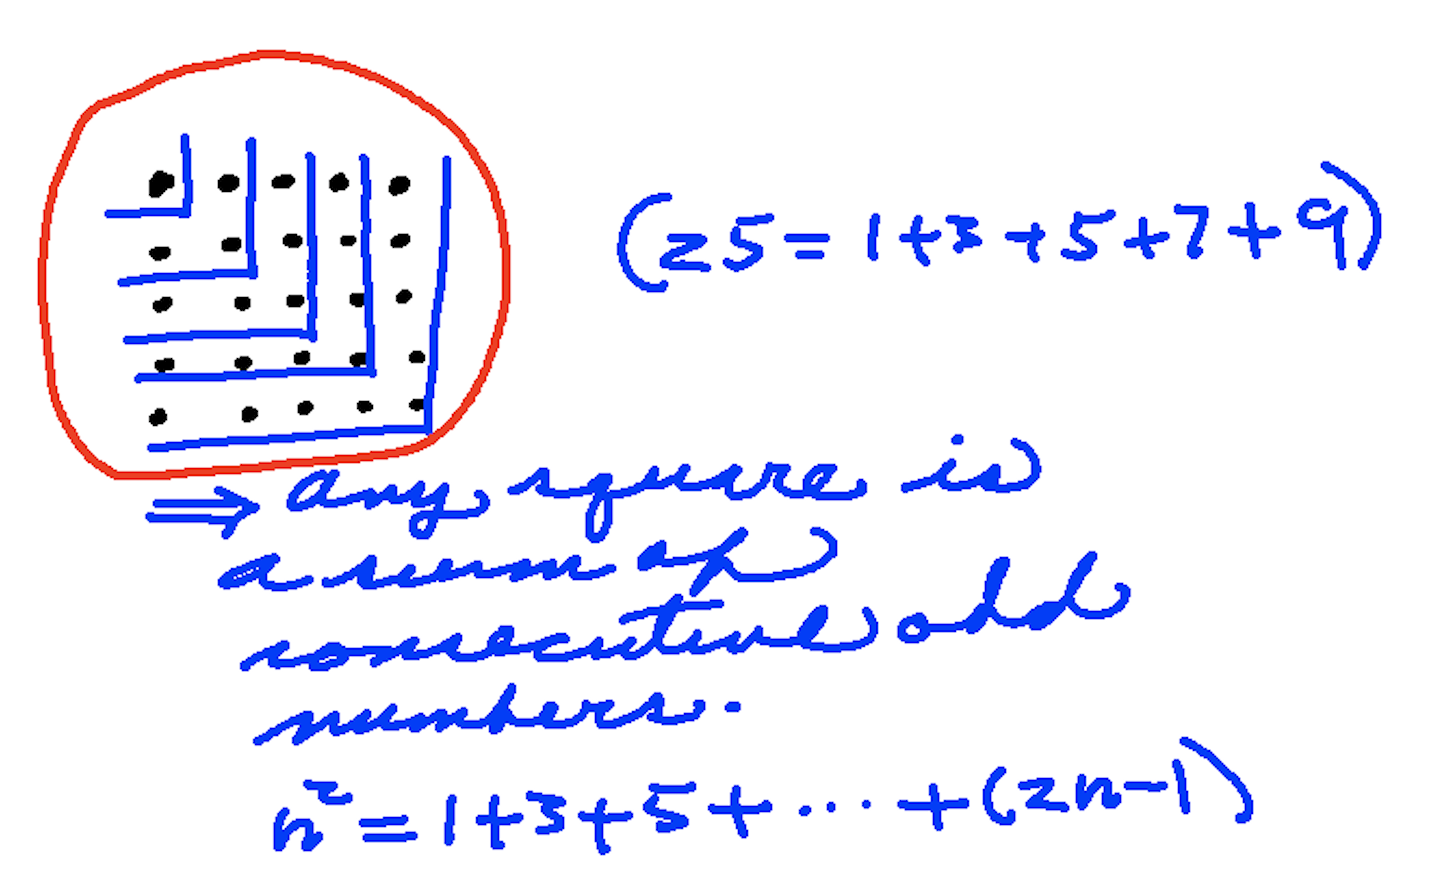 (25=1+3+5+7+9)
⇒ any square is
a sum of
consecutive odd
numbers.
n²=1+3+5+...+(2n-1)